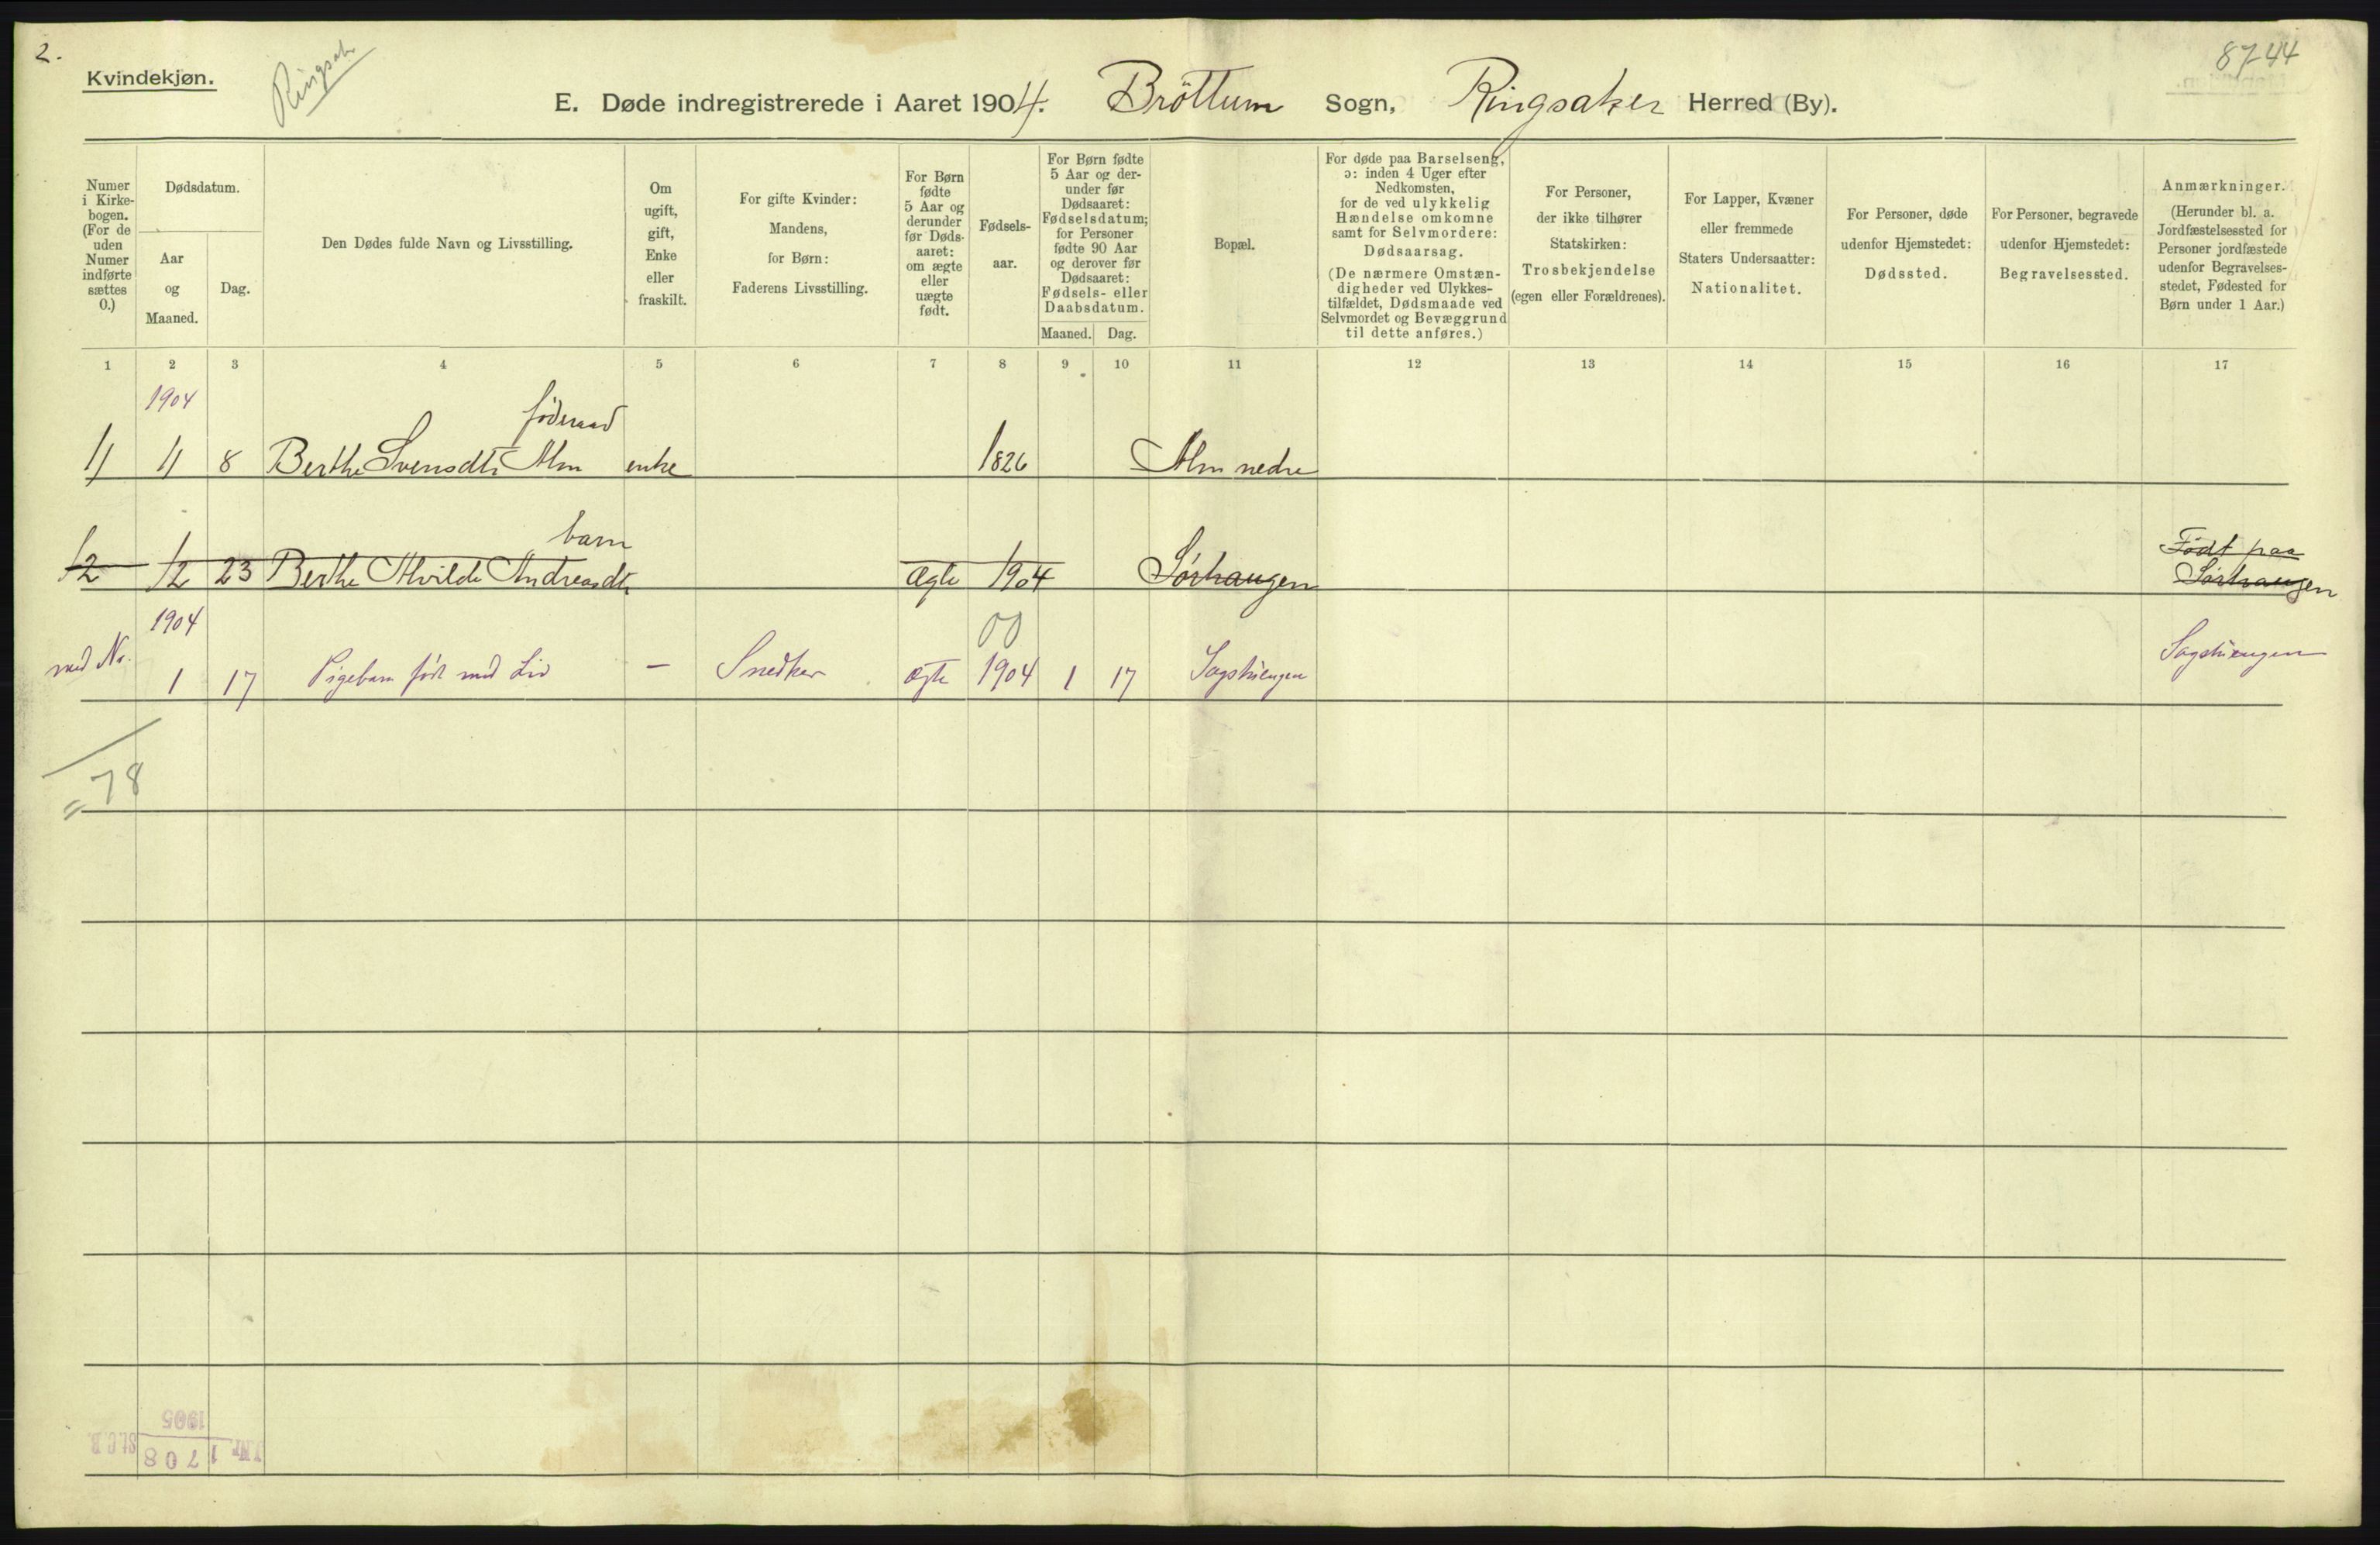 2.
Kvindekjøn.
Ringsak
8744
E. Døde indregistrerede i Aaret 1904. Bröttum Sogn, Ringsaker Herred (By).
Numer i Kirke- bogen. (For de uden Numer indførte sættes 0.)
Dødsdatum.
Aar og Maaned.
Dag.
Den Dødes fulde Navn og Livsstilling.
Om ugift, gift, Enke eller fraskilt.
For gifte Kvinder: Mandens, for Børn: Faderens Livsstilling.
For Børn fødte 5 Aar og derunder før Døds- aaret: om ægte eller uægte født.
Fødsels- aar.
For Børn fødte 5 Aar og der- under før Dødsaaret: Fødselsdatum; for Personer fødte 90 Aar og derover før Dødsaaret: Fødsels- eller Daabsdatum.
Maaned. Dag.
Bopæl.
For døde paa Barselseng, ɔ: inden 4 Uger efter Nedkomsten, for de ved ulykkelig Hændelse omkomne samt for Selvmordere: Dødsaarsag. (De nærmere Omstæn- digheder ved Ulykkes- tilfældet, Dødsmaade ved Selvmordet og Bevæggrund til dette anføres.)
For Personer, der ikke tilhører Statskirken: Trosbekjendelse (egen eller Forældrenes).
For Lapper, Kvæner eller fremmede Staters Undersaatter: Nationalitet.
For Personer, døde udenfor Hjemstedet: Dødssted.
For Personer, begravede udenfor Hjemstedet: Begravelsessted.
Anmærkninger. (Herunder bl. a. Jordfæstelsessted for Personer jordfæstede udenfor Begravelses- stedet, Fødested for Børn under 1 Aar.)
1 2 3 4 5 6 7 8 9 10 11 12 13 14 15 16 17
1904
föderaad
11 11 8 Berthe Svensdtr Alm enke 1826 Alm nedre
barn
12 12 23 Berthe Alvilde Andreasdtr ægte 1904 Sörhaugen
Födt paa
Sörhaugen
1904
00
med No. 1 17 Pigebarn født med Liv — Snedker ægte 1904 1 17 Sagstuengen Sagstuengen
= 78
1905
J.Nr. 1708 St.C.B.